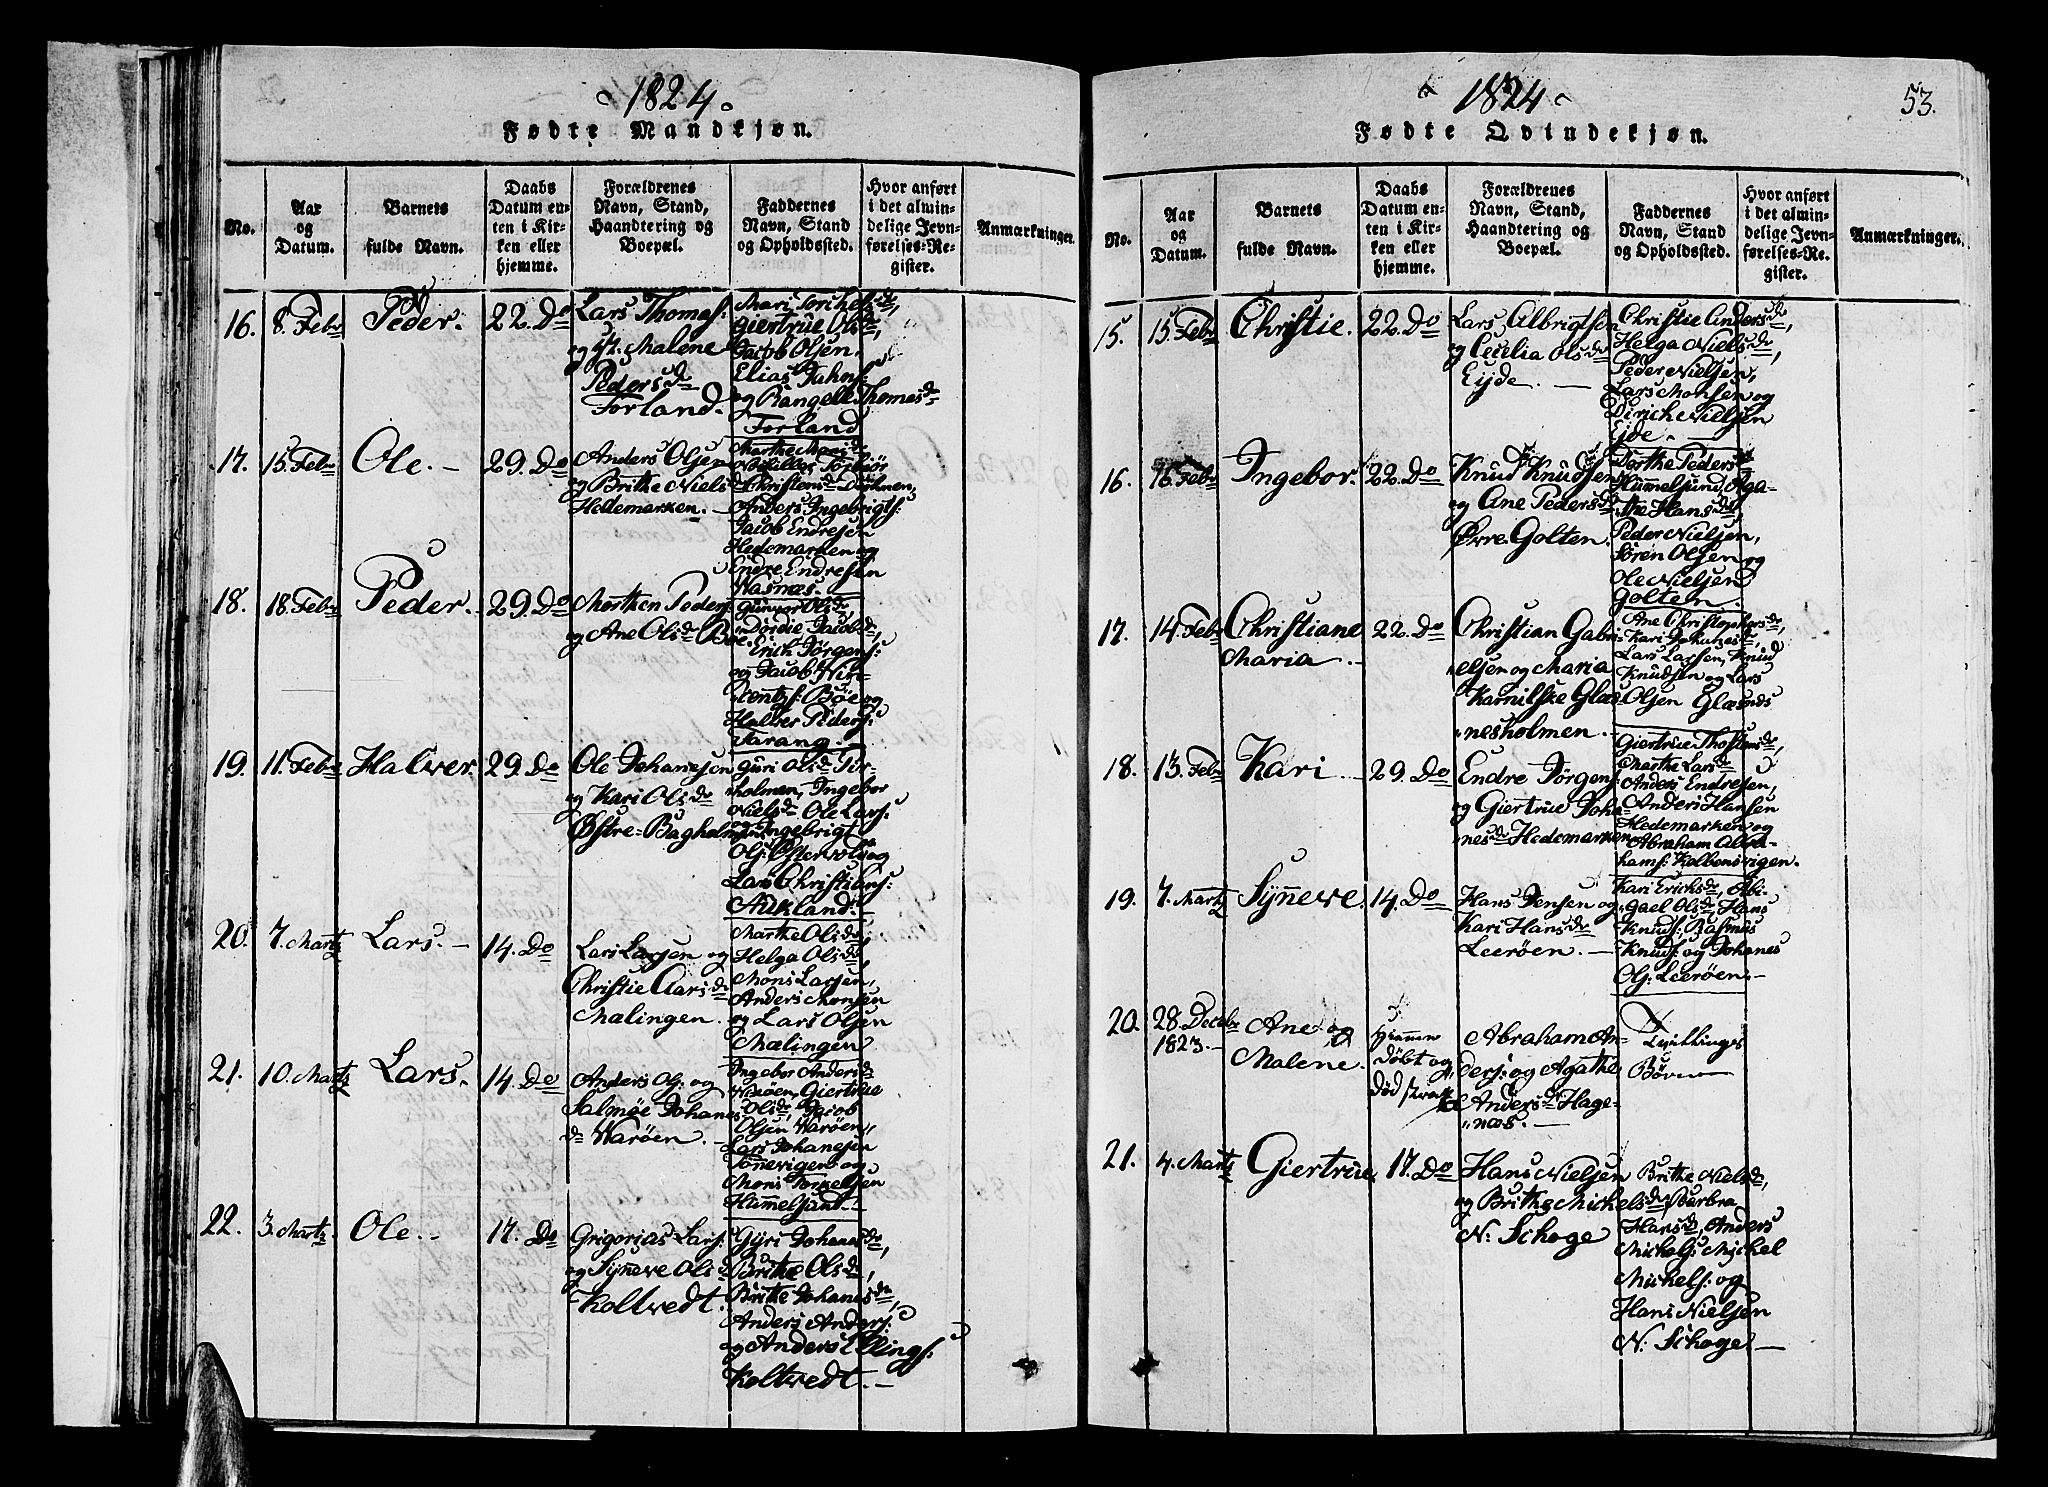 1824.
Fødte Mandkjøn.
No.
Aar
og
Datum.
Barnets
fulde Navn.
Daabs
Datum en-
ten i Kir-
ken eller
hjemme.
Forældrenes
Navn, Stand,
Haandtering og
Boepæl.
Faddernes
Navn, Stand
og Opholdssted.
Hvor anført
i det almin-
delige Jevn-
førelses-Re-
gister.
Anmærkninger.
16. 8. Febr Peder. 22. Do
Lars Thomas:
og Malene
Pedersdr
Forland.
Mari Torchelsdr,
Giertrue Olsdr,
Jacob Olsen,
Elias Jahns:
og Rangele Thomasdr
Forland
17. 15. Febr Ole. 29. Do
Anders Olsen
og Brithe Nielsd
Hedemarken.
Christensdr
Anders Ingebrigts:
Jacob Endresen
Hedemarken og
Endre Endresen
Wasnæs.
18. 18. Febr Peder. 29. Do
Morthen Peders:
og Ane Olsdr Böe.
Gunvor Olsdr,
Jacobsdr,
Erich Jörgens:
og Jacob Win-
Böe og
Halver Peders:
Tarang.
19. 11. Febr Halver 29. Do
Ole Johanesen
og Kari Olsdr
Østre-Bagholmen
Guri Olsdr Tor-
holmen, Ingebor
Nielsdr Ole Lars:
og Ingebrigt
Ols: Österwold og
Lars Christians:
Aukland.
20. 7. Martz Lars. 14. Do
Lars Larsen og
Christie Aarsdr
Mælingen.
Marthe Olsdr
Helga Olsdr,
Mons Larsen,
Anders Monsen
og Lars Olsen
Mælingen
21. 10. Martz Lars. 14. Do
Anders Ols: og
Salmöe Johanes
dr Waröen.
Ingebor Andersdr
Waröen, Giertrue
Olsdr, Jacob
Olsen Waröen,
Lars Johanesen
Tonnevigen og
Mons Torkelsen
Hummelsund.
22. 3. Martz Ole. 17. Do
Grigorias Lars:
og Synneve Olsd
Koltvedt.
Gyri Johanesdr,
Brithe Olsdr,
Brithe Johanesdr,
Anders Anders:
og Anders Ellings:
Koltvedt.
1824
53.
Fødte Qvindekjøn.
No.
Aar
og
Datum.
Barnets
fulde Navn.
Daabs
Datum en-
ten i Kir-
ken eller
hjemme.
Forældrenes
Navn, Stand,
Haandtering og
Boepæl.
Faddernes
Navn, Stand
og Opholdssted.
Hvor anført
i det almin-
delige Jevn-
førelses-Re-
gister.
Anmærkninger.
15. 15. Febr Christie. 22. Do
Lars Albrigtsen
og Cecilia Olsdr
Eijde.
Christie Andersdr,
Helga Nielsdr,
Peder Nielsen,
Lars Monsen og
Dirich Nielsen
Ejde.
16. 16. Febr Ingebor. 22. Do
Knud Knudsen
og Ane Pedersdr
Øvre Golten.
Dorthe Pedersdr
Hummelsund, Aga-
the Hansdr,
Peder Nielsen,
Sören Olsen og
Ole Nielsen
Golten.
17. 14. Febr Christiane 22. Do
Maria.
Christian Gabri-
elsen og Maria
Karnilske Glæs-
nesholmen.
Ane Christophersdr,
Kari Johanesdr,
Lars Larsen, Knud
Knudsen og Lars
Olsen Glæsnds
18. 13. Febr Kari 29. Do
Endre Jörgens:
og Giertrue Joha-
nesdr Hedemarken
Giertrue Thostensdr,
Marthe Larsdr
Anders Endresen,
Anders Hansen
Hedemarken og
Abraham Abra-
hams: Kolbensvigen.
19. 7. Martz Synneve. 14. Do
Hans Jensen og
Kari Hansdr
Leeröen.
Kari Erichsdr, Abi-
gael Olsdr, Hans
Knuds: Rasmus
Knuds: og Johanes
Ols: Leeröen.
20. 28. Decbr Ane og
1823. Malene.
hjemme
döbt og
död strax
Abraham An-
ders: og Agathe
Andersdr Hage-
næs.
Tvillinge
Börn
21. 4. Martz Giertrue 17. Do
Hans Nielsen
og Brithe Michelsdr
N: Schoge
Brithe Nielsdr,
Barbra
Hansdr, Anders
Michels: Michel
Michels: og
Hans Nielsen
N: Schoge.